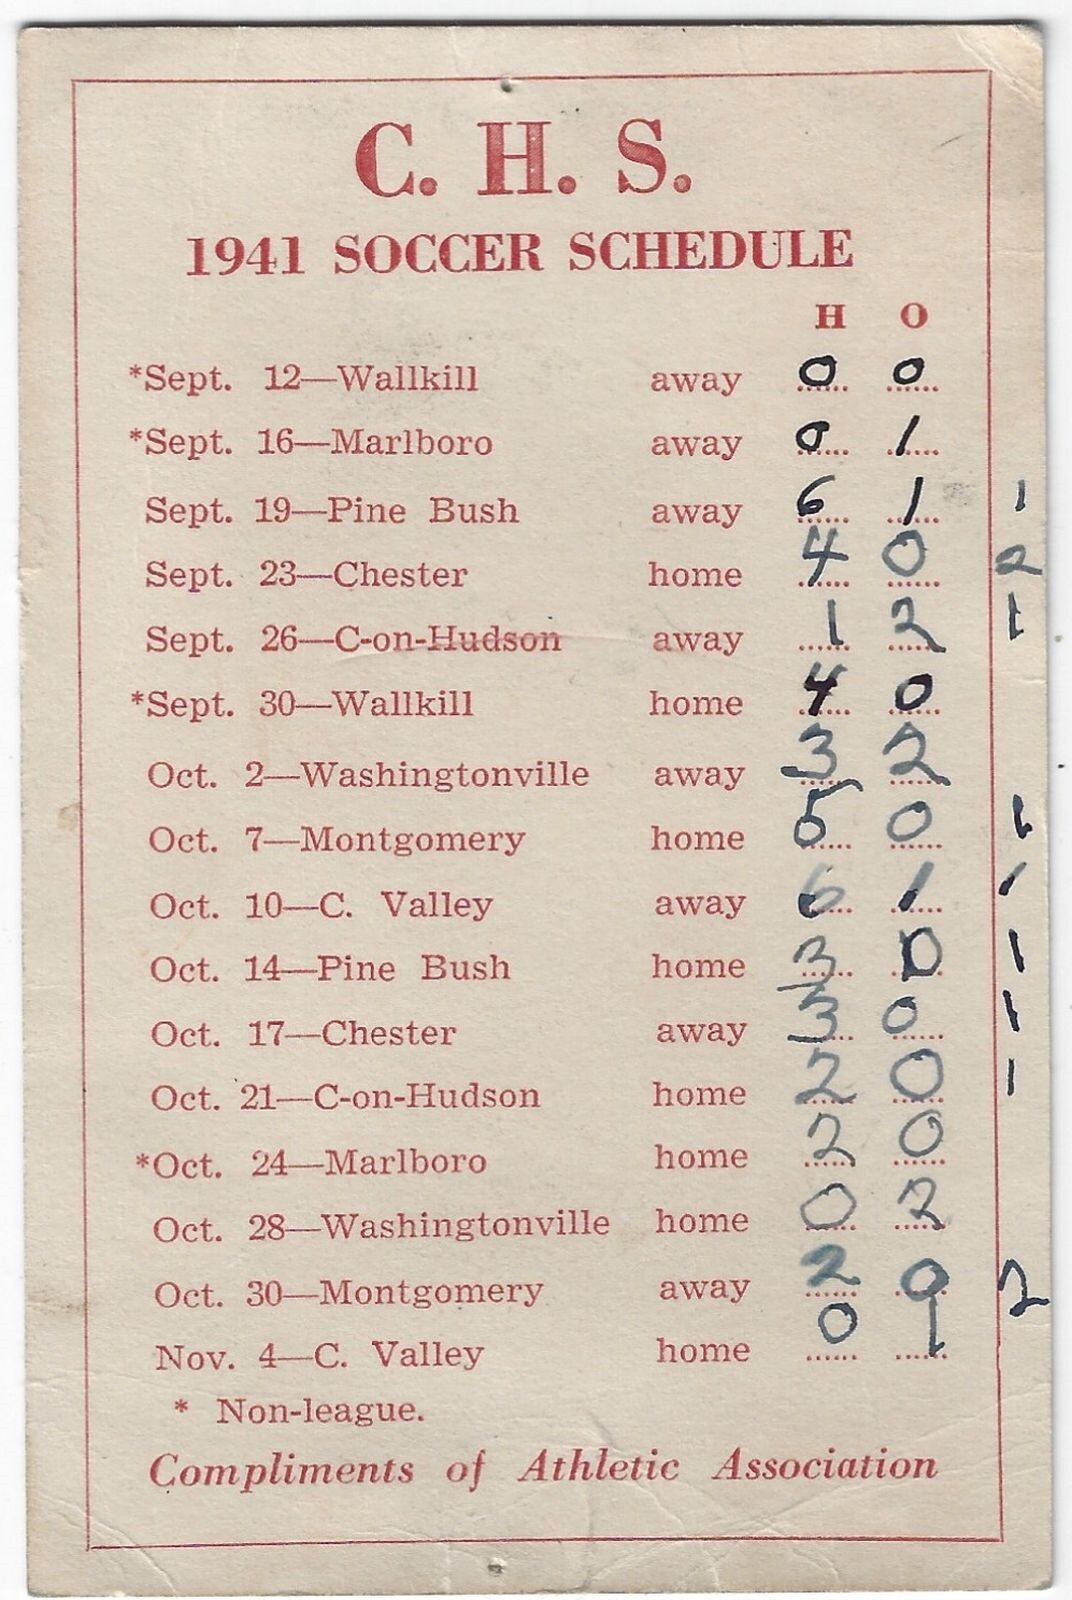 C. H. S.
1941 SOCCER SCHEDULE
H O
*Sept. 12—Wallkill away 0 0
*Sept. 16—Marlboro away 0 1
Sept. 19—Pine Bush away 6 1 1
Sept. 23—Chester home 4 0 2
Sept. 26—C-on-Hudson away 1 2 1
*Sept. 30—Wallkill home 4 0
Oct. 2—Washingtonville away 3 2
Oct. 7—Montgomery home 5 0 1
Oct. 10—C. Valley away 6 1 1
Oct. 14—Pine Bush home 3 0 1
Oct. 17—Chester away 3 0 1
Oct. 21—C-on-Hudson home 2 0 1
*Oct. 24—Marlboro home 2 0
Oct. 28—Washingtonville home 0 2
Oct. 30—Montgomery away 2 0 2
Nov. 4—C. Valley home 0 1
* Non-league.
Compliments of Athletic Association